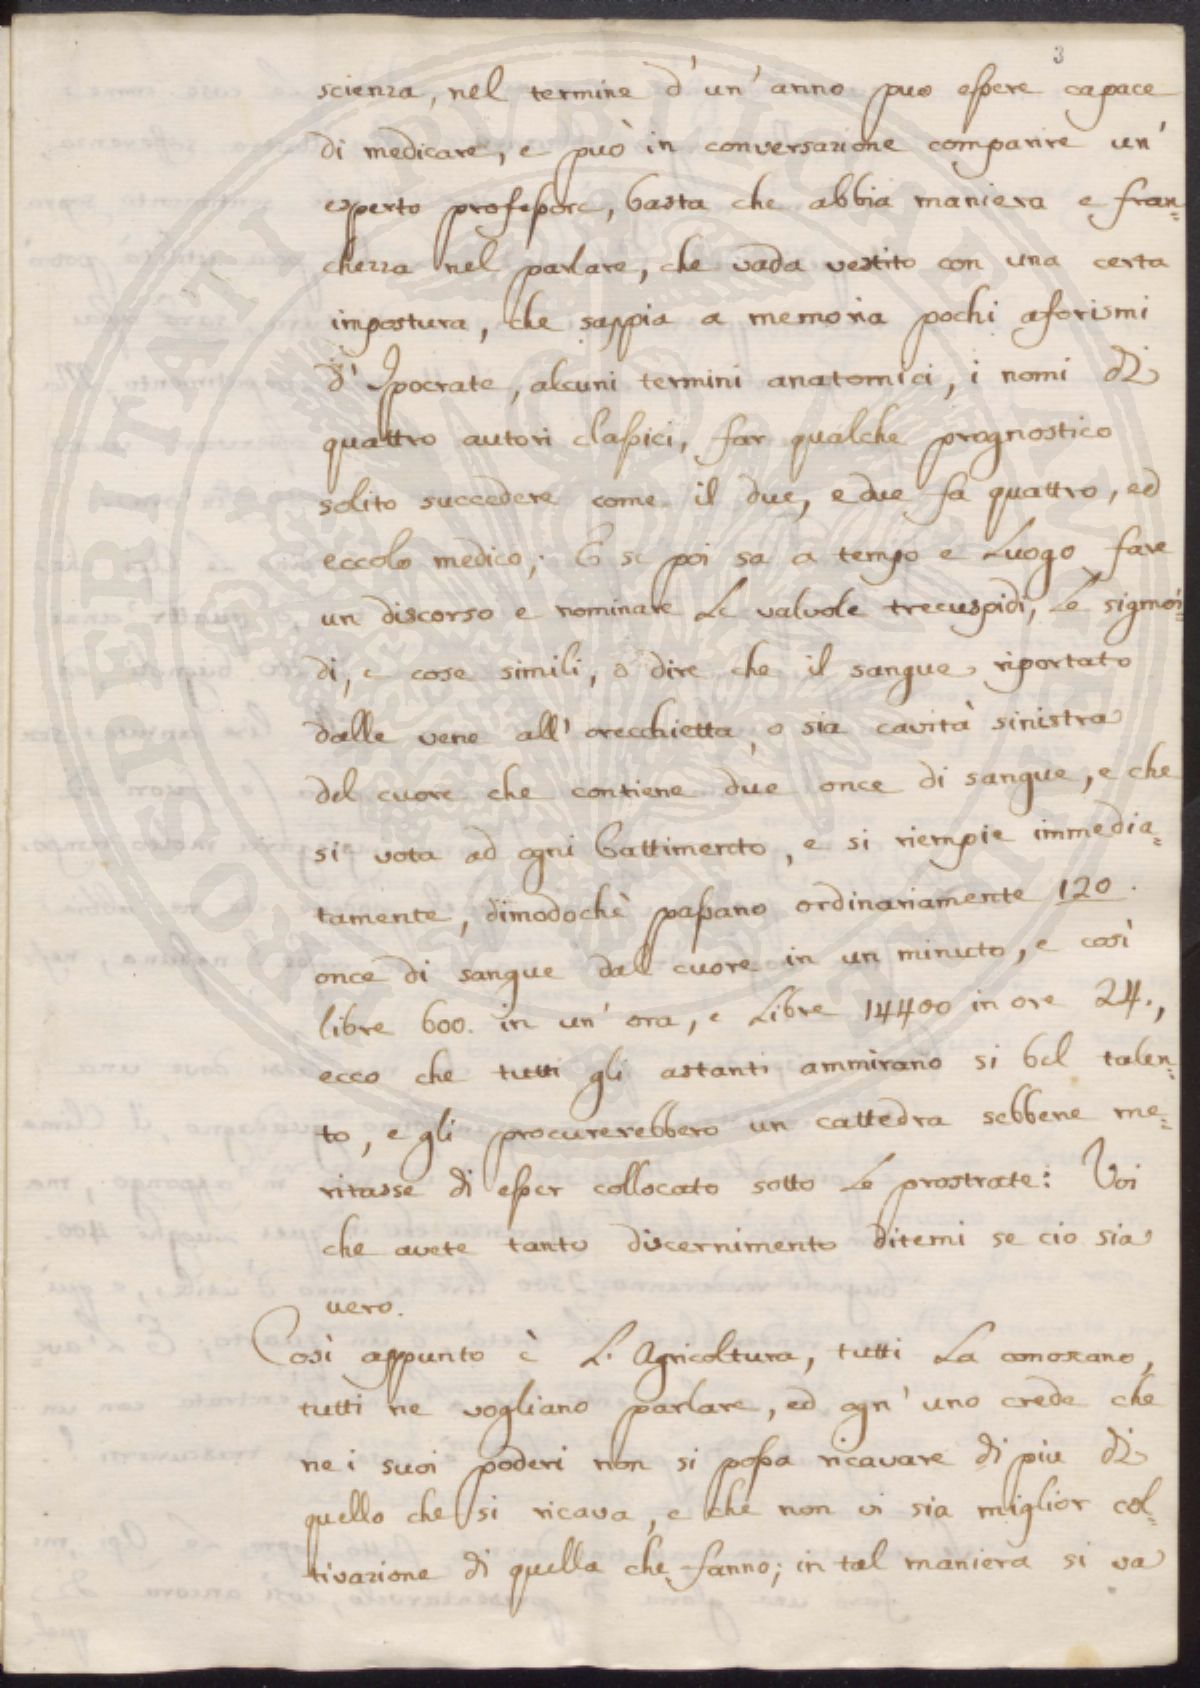 3
scienza, nel termine d'un'anno puo essere capace
di medicare, e può in conversazione comparire un'
esperto professore, basta che abbia maniera e fran=
chezza nel parlare, che vada vestito con una certa
impostura, che sappia a memoria pochi aforismi
d'Ipocrate, alcuni termini anatomici, i nomi di
quattro autori classici, far qualche prognostico
solito succedere come il due, e due fa quattro, ed
eccolo medico; E se poi sa a tempo e Luogo fare
un discorso e nominare Le valvole trecuspidi, Le sigmoi=
di, e cose simili, o dire che il sangue riportato
dalle vene all'orecchietta, o sia cavità sinistra
del cuore che contiene due once di sangue, e che
si vota ad ogni battimento, e si riempie immedia=
tamente, dimodochè passano ordinariamente 120.
once di sangue dal cuore in un minuto, e così
libre 600. in un'ora, e Libre 14400 in ore 24.,
ecco che tutti gli astanti ammirano si bel talen=
to, e gli procurerebbero un cattedra sebbene me=
ritasse di esser collocato sotto Le prostrate: Voi
che avete tanto discernimento ditemi se cio sia
vero.
Così appunto è L'Agricoltura, tutti La conoscano,
tutti ne vogliano parlare, ed ogn'uno crede che
ne i suoi poderi non si possa ricavare di piu di
quello che si ricava, e che non vi sia miglior col=
tivazione di quella che fanno; in tal maniera si va